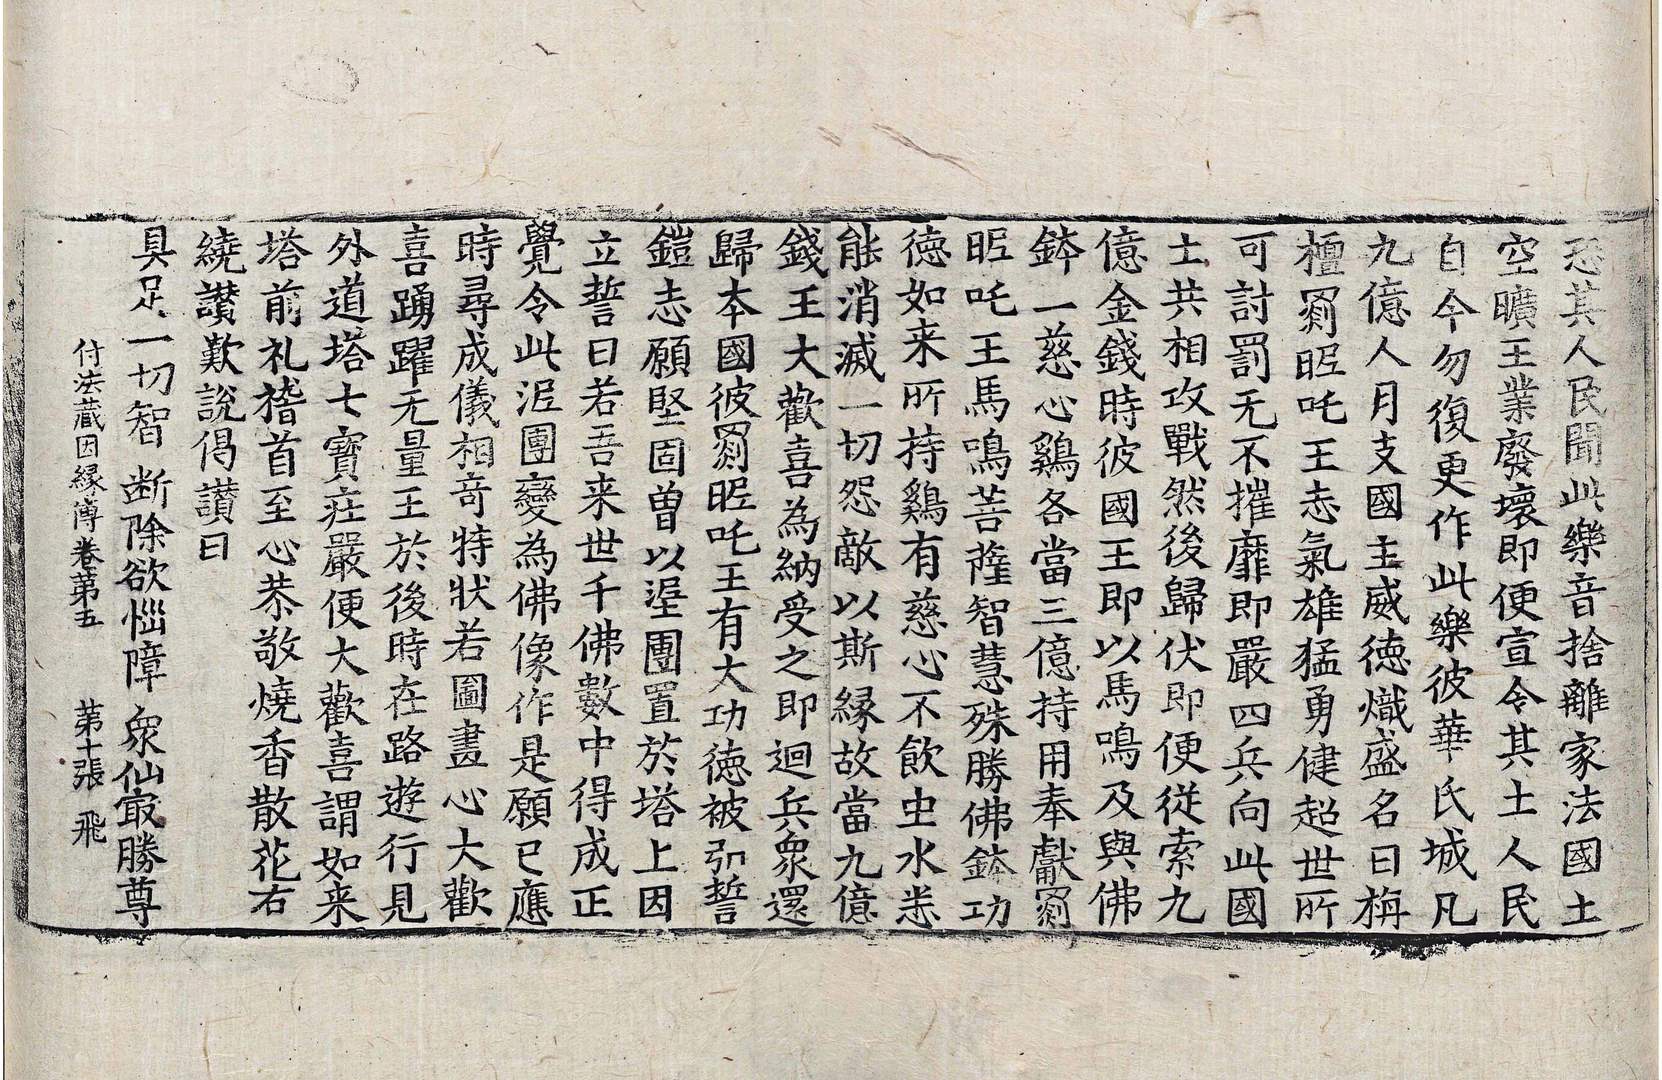 恐其人民聞此樂音捨離家法國土
空曠王業廢壞即便宣令其土人民
自今勿復更作此樂彼華氏城凡
九億人月支國主威徳熾盛名曰栴
檀罽昵吒王志氣雄猛勇健超世所
可討罰无不摧靡即嚴四兵向此國
土共相攻戰然後歸伏即便從索九
億金錢時彼國王即以馬鳴及與佛
鉢一慈心鷄各當三億持用奉獻罽
昵吒王馬鳴菩薩智慧殊勝佛鉢功
徳如来所持鷄有慈心不飲虫水悉
能消滅一切怨敵以斯縁故當九億
錢王大歡喜為納受之即迴兵衆還
歸本國彼罽昵吒王有大功徳被弘誓
鎧志願堅固曽以埿團置於塔上因
立誓曰若吾来世千佛數中得成正
覺令此泥團變為佛像作是願已應
時尋成儀相竒特状若圖畫心大歡
喜踴躍无量王於後時在路遊行見
外道塔七寶莊嚴便大歡喜謂如来
塔前礼稽首至心恭敬燒香散花右
繞讃歎說偈讃曰
具足一切智 断除欲惱障 衆仙冣勝尊
付法藏因縁傳卷第五 第十張 飛